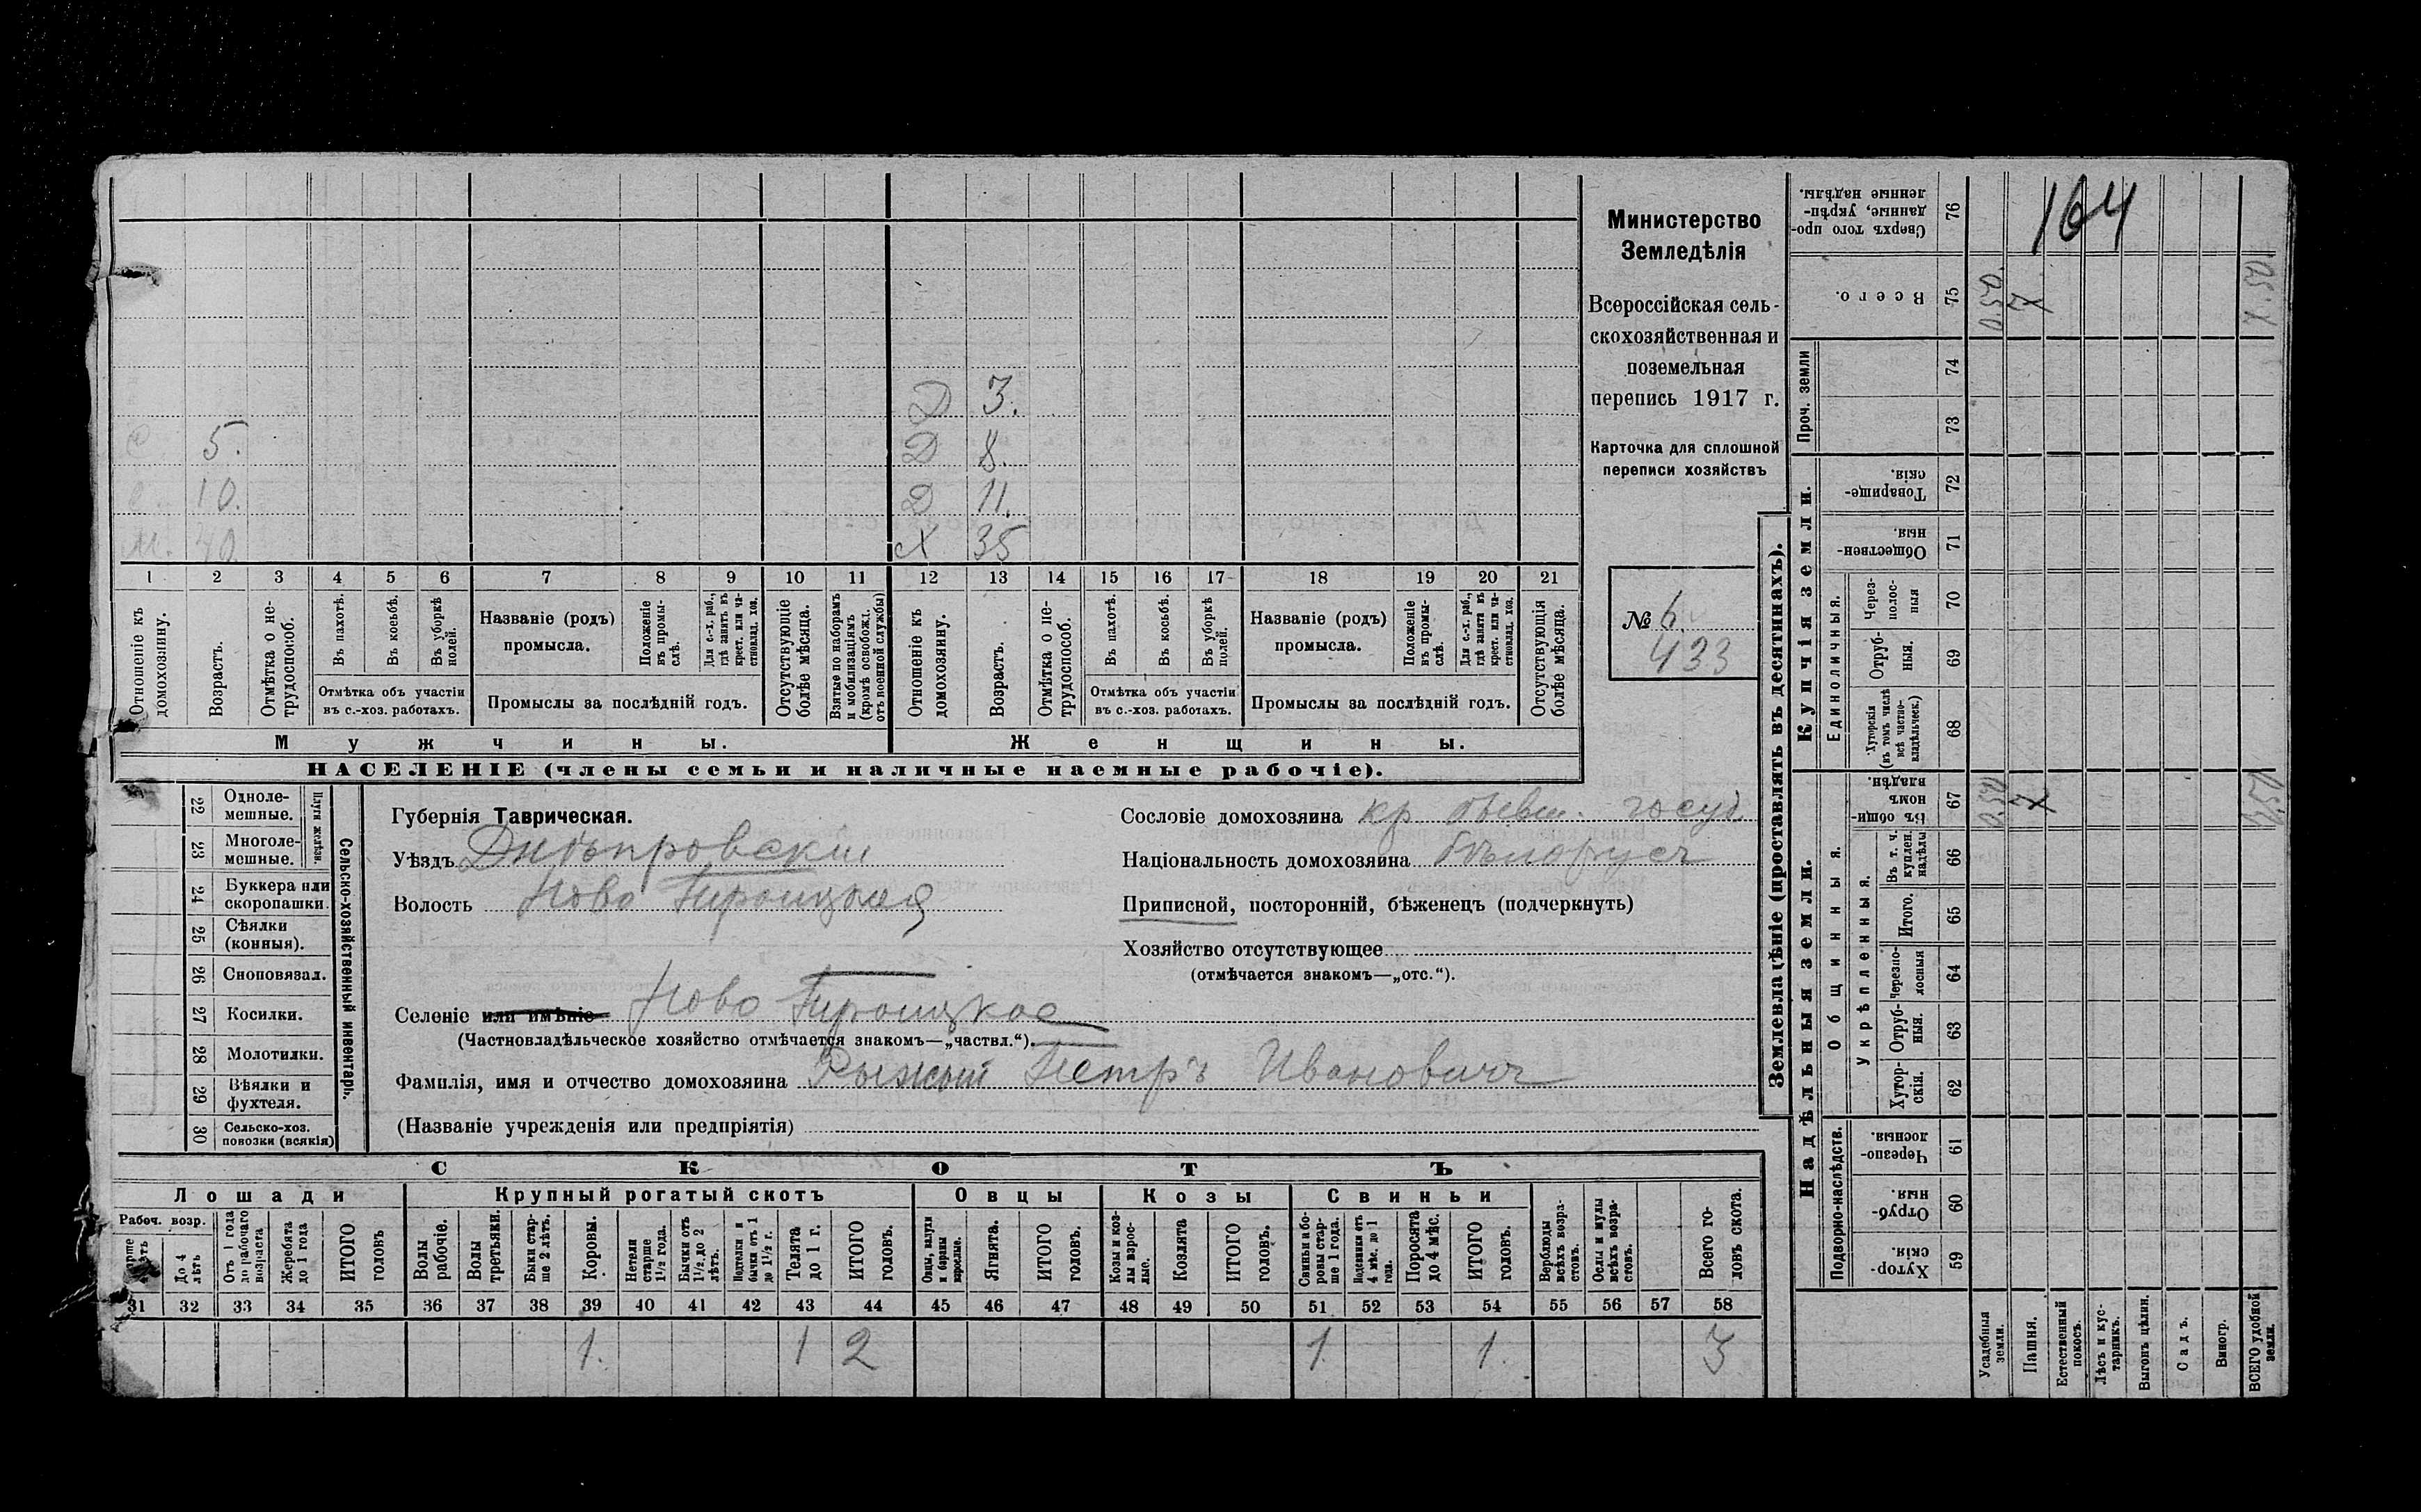 Министерство
Земледѣлія
Всероссійская сель-
скохозяйственная и
поземельная
перепись 1917 г.
Карточка для сплошной
переписи хозяйствъ
№ 6.
433
164
Д 3.
5. Д 8.
10. Д 11.
М. 40. Х 35
1 2 3 4 5 6 7 8 9 10 11 12 13 14 15 16 17 18 19 20 21
Отношеніе къ домохозяину.
Возрастъ.
Отмѣтка о не-трудоспособ.
Въ пахотѣ.
Въ косьбѣ.
Въ уборкѣ полей.
Отмѣтка объ участіи
въ с.-хоз. работахъ.
Названіе (родъ)
промысла.
Положеніе въ промы-слѣ.
Для с.-х. раб., гдѣ занятъ въ крест. или ча-стновлад. хоз.
Промыслы за послѣдній годъ.
Отсутствующіе болѣе мѣсяца.
Взятые по наборамъ и мобилизаціямъ (кромѣ освобожд. отъ военной службы)
Отношеніе къ домохозяину.
Возрастъ.
Отмѣтка о не-трудоспособ.
Въ пахотѣ.
Въ косьбѣ.
Въ уборкѣ полей.
Отмѣтка объ участіи
въ с.-хоз. работахъ.
Названіе (родъ)
промысла.
Положеніе въ промы-слѣ.
Для с.-х. раб., гдѣ занята въ крест. или ча-стновлад. хоз.
Промыслы за послѣдній годъ.
Отсутствующія болѣе мѣсяца.
Мужчины. Женщины.
НАСЕЛЕНІЕ (члены семьи и наличные наемные рабочіе).
Сельско-хозяйственный инвентарь.
Плуги желѣзн.
22 Одноле-мешные.
23 Многоле-мешные.
24 Буккера или скоропашки.
25 Сѣялки (конныя).
26 Сноповязал.
27 Косилки.
28 Молотилки.
29 Вѣялки и фухтеля.
30 Сельско-хоз. повозки (всякія)
Губернія Таврическая.
Уѣздъ Днѣпровскій
Волость Ново Троицкая
Селеніе или имѣніе Ново Троицкое
(Частновладѣльческое хозяйство отмѣчается знакомъ—„частвл.“).
Фамилія, имя и отчество домохозяина Рыжый Петръ Ивановичъ
(Названіе учрежденія или предпріятія)
Сословіе домохозяина кр. бывш. госуд
Національность домохозяина бѣлорусъ
Приписной, посторонній, бѣженецъ (подчеркнуть)
Хозяйство отсутствующее
(отмѣчается знакомъ—„отс.“).
СКОТЪ
Лошади Крупный рогатый скотъ Овцы Козы Свиньи
Рабоч. возр.
До 4 лѣтъ
Отъ 1 года до рабочаго возраста
Жеребята до 1 года
ИТОГО головъ
Волы рабочіе.
Волы третьяки.
Быки стар-ше 2 лѣтъ.
Коровы.
Нетели старше 1½ года.
Бычки отъ 1½ до 2 лѣтъ.
Подтелки и бычки отъ 1 до 1½ г.
Телята до 1 г.
ИТОГО головъ.
Овцы, валухи и бараны взрослые.
Ягнята.
ИТОГО головъ.
Козы и коз-лы взрос-лые.
Козлята
ИТОГО головъ.
Свиньи и бо-ровы стар-ше 1 года.
Подсвинки отъ 4 мѣс. до 1 года.
Поросята до 4 мѣс.
ИТОГО головъ.
Верблюды всѣхъ возра-стовъ.
Ослы и мулы всѣхъ возра-стовъ.
Всего го-ловъ скота.
31 32 33 34 35 36 37 38 39 40 41 42 43 44 45 46 47 48 49 50 51 52 53 54 55 56 57 58
1. 1 2 1. 1. 3
Землевладѣніе (проставлять въ десятинахъ).
Надѣльныя земли. Купчія земли.
Подворно-наслѣдств.
Общинныя.
Укрѣпленныя.
Единоличныя.
Проч. земли
76 Сверхъ того про-данные, укрѣп-ленные надѣлы.
75 Всего.
74
73
72 Товарище-скія.
71 Обществен-ныя.
70 Через-полос-ныя
69 Отруб-ныя.
68 Хуторскія (въ томъ числѣ всѣ частно-владѣльческ.)
67 Въ общин-номъ владѣн.
66 Въ т. ч. куплен. надѣлы
65 Итого.
64 Черезпо-лосныя
63 Отруб-ныя.
62 Хутор-скія.
61 Черезпо-лосныя.
60 Отруб-ныя.
59 Хутор-скія.
Усадебныя земли.
Пашня.
Естественный покосъ.
Лѣсъ и кус-тарникъ.
Выгонъ цѣлин.
Садъ.
Виногр.
ВСЕГО удобной земли.
7
7